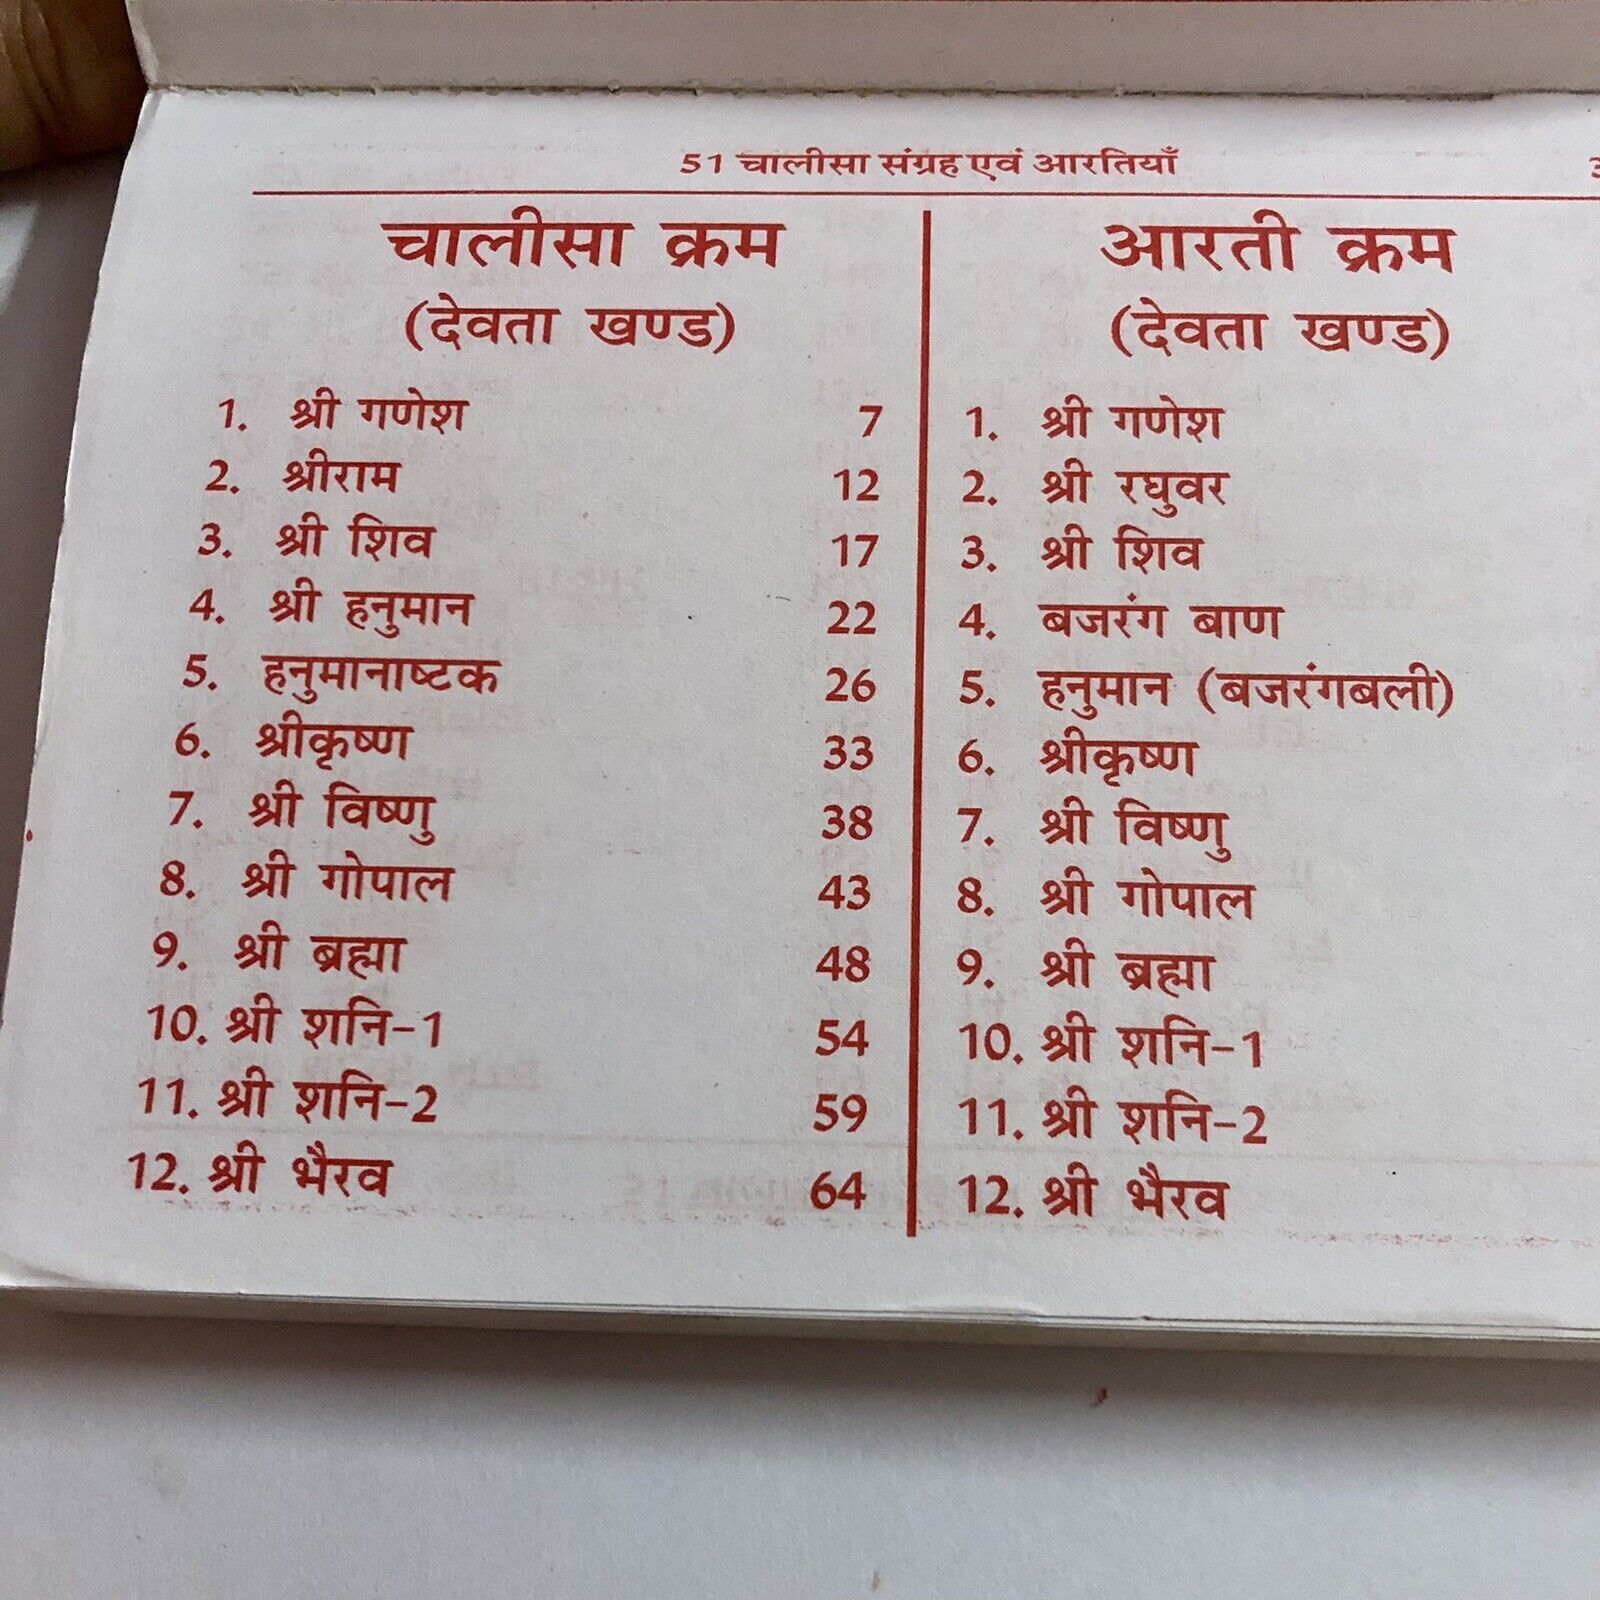 51 चालीसा संग्रह एवं आरतियाँ
चालीसा क्रम
(देवता खण्ड)
1. श्री गणेश 7
2. श्रीराम 12
3. श्री शिव 17
4. श्री हनुमान 22
5. हनुमानाष्टक 26
6. श्रीकृष्ण 33
7. श्री विष्णु 38
8. श्री गोपाल 43
9. श्री ब्रह्मा 48
10. श्री शनि-1 54
11. श्री शनि-2 59
12. श्री भैरव 64
आरती क्रम
(देवता खण्ड)
1. श्री गणेश
2. श्री रघुवर
3. श्री शिव
4. बजरंग बाण
5. हनुमान (बजरंगबली)
6. श्रीकृष्ण
7. श्री विष्णु
8. श्री गोपाल
9. श्री ब्रह्मा
10. श्री शनि-1
11. श्री शनि-2
12. श्री भैरव